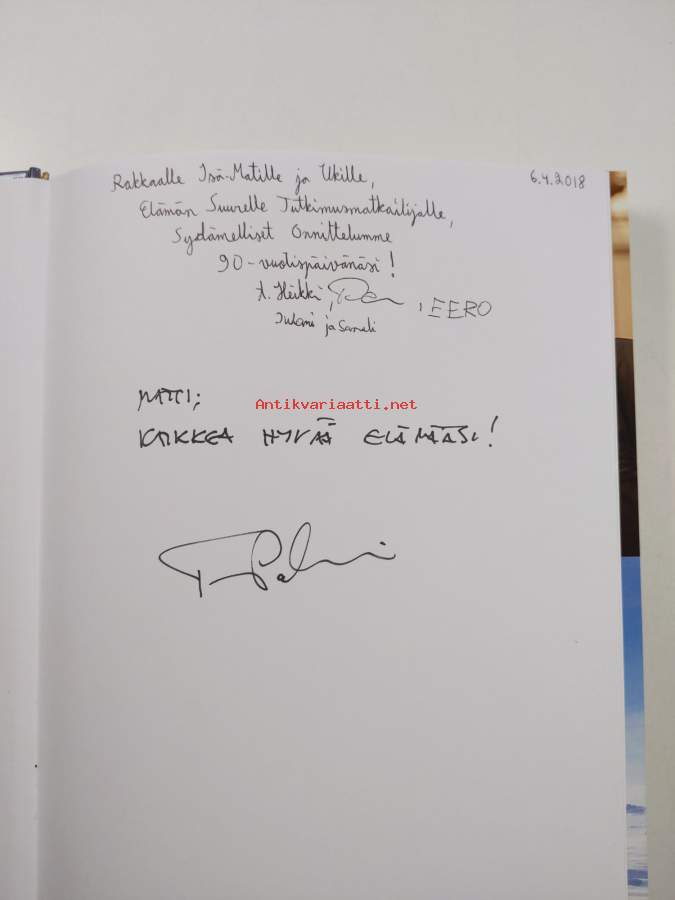 Rakkaalle Isä-Matille ja Ukille,
6.4.2018
Elämän Suurelle Tutkimusmatkailijalle,
Sydämelliset Onnittelumme
90-vuotispäivänäsi!
t. Heikki, , EERO
ja Samuli
MATTI;
Antikvariaatti.net
KAIKKEA HYVÄÄ ELÄMÄÄSI!